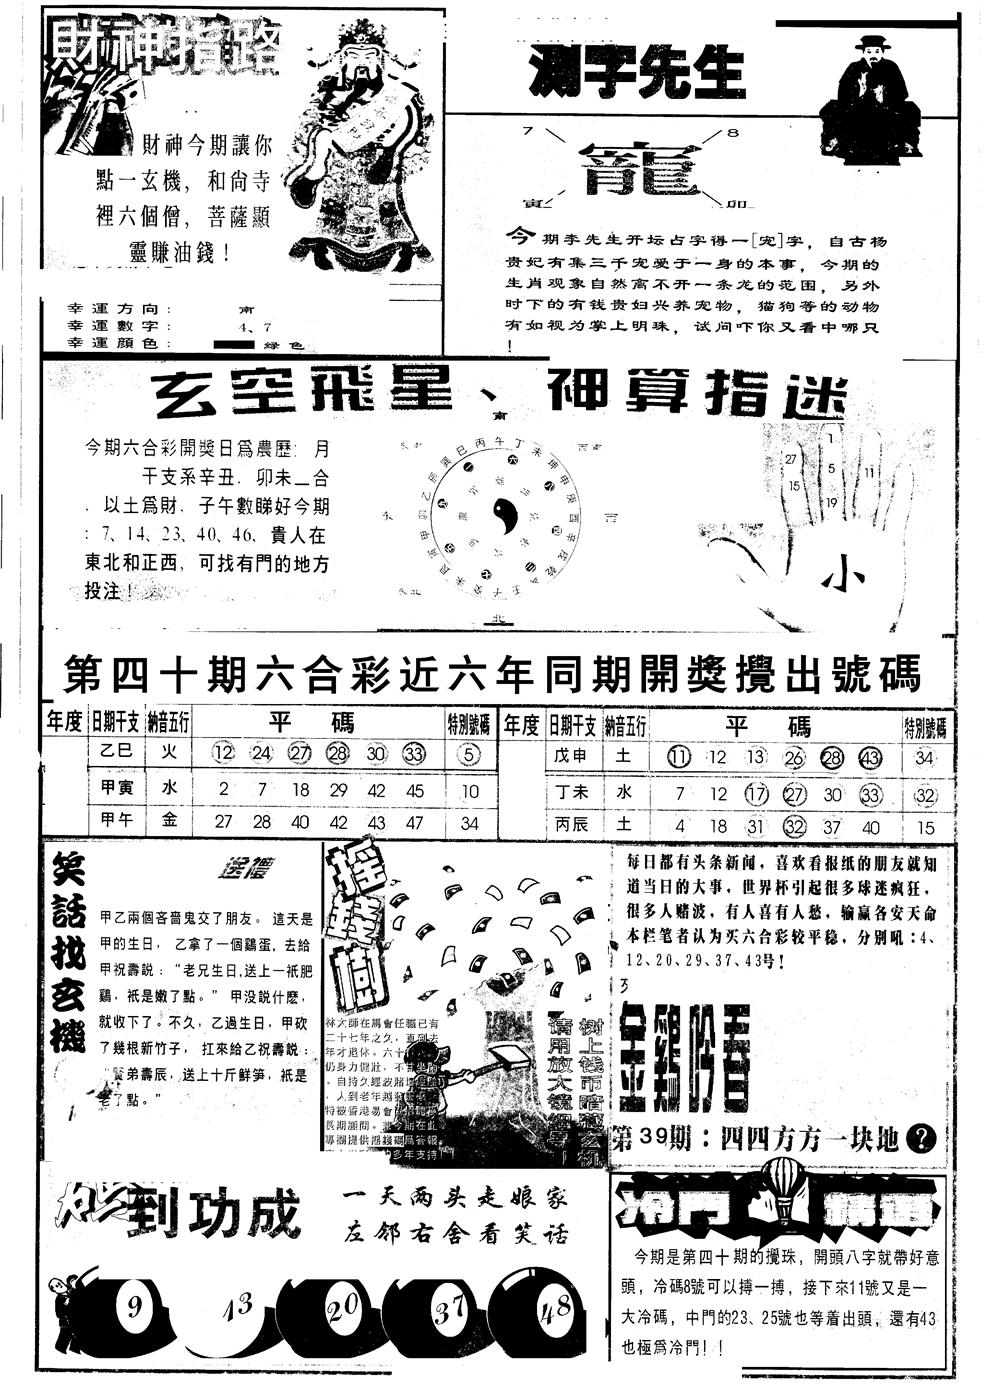 財神指路
財神今期讓你
點一玄機，和尙寺
裡六個僧，菩薩顯
靈賺油錢！
幸運方向： 南
幸運數字： 4、7
幸運顏色： 绿色
测字先生
7 8
寵
寅 卯
今期李先生开坛占字得一[宠]字，自古杨
贵妃有集三千宠爱于一身的本事，今期的
生肖观象自然离不开一条龙的范围，另外
时下的有钱贵妇兴养宠物，猫狗等的动物
有如视为掌上明珠，试问吓你又看中哪只
！
玄空飛星、神算指迷
今期六合彩開獎日爲農歷 月
干支系辛丑．卯未二合
．以土爲財．子午數睇好今期
：7、14、23、40、46、貴人在
東北和正西，可找有門的地方
投注！
南
北
1
27 5 11
15 19
小
第四十期六合彩近六年同期開獎攪出號碼
年度 日期干支 納音五行 平碼 特別號碼 年度 日期干支 納音五行 平碼 特別號碼
乙巳 火 12 24 27 28 30 33 5 戊申 土 11 12 13 26 28 43 34
甲寅 水 2 7 18 29 42 45 10 丁未 水 7 12 17 27 30 33 32
甲午 金 27 28 40 42 43 47 34 丙辰 土 4 18 31 32 37 40 15
笑話找玄機
送禮
甲乙兩個吝嗇鬼交了朋友。這天是
甲的生日，乙拿了一個鷄蛋，去給
甲祝壽説：“老兄生日,送上一衹肥
鷄，衹是嫩了點。”甲没説什麽，
就收下了。不久，乙過生日，甲砍
了幾根新竹子，扛來給乙祝壽説：
弟壽辰，送上十斤鮮笋，衹是
老了點。”
摇錢樹
林大師在馬會任職已有
二十七年之久，直到去
年才退休。六十
仍身力健壯，不
．自持久經政賭
．人到老年越
特被香港易會
長期顧問。 今期在此
專欄提供摇錢 爲答報
多年支持
树上钱币暗藏玄机
请用放大镜细看！
每日都有头条新闻，喜欢看报纸的朋友就知
道当日的大事，世界杯引起很多球迷疯狂，
很多人赌波，有人喜有人愁，输赢各安天命
本栏笔者认为买六合彩较平稳，分别吼：4、
12、20、29、37、43号！
金鷄吟春
第39期：四四方方一块地?
到功成
一天两头走娘家
左邻右舍看笑话
9 13 20 37 48
冷門精選
今期是第四十期的攪珠，開頭八字就帶好意
頭，冷碼8號可以搏一搏，接下來11號又是一
大冷碼，中門的23、25號也等着出頭，還有43
也極爲冷門！！